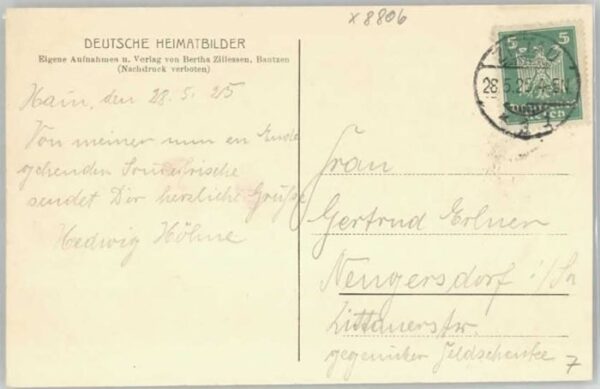 x 8806
DEUTSCHE HEIMATBILDER
Eigene Aufnahmes u. Verlag von Bertha Zillessen, Bautzen
(Nachdruck verboten)
Hain, den 28. 5. 25
Von meiner nun en Ende
gehenden Sommerfrische
sendet Dir herzliche Grüße
Hedwig Höhne
5
28.5.25
Frau
Gertrud
Neugersdorf i/Sa
Zittauerstr.
gegenüber Feldschenke
7